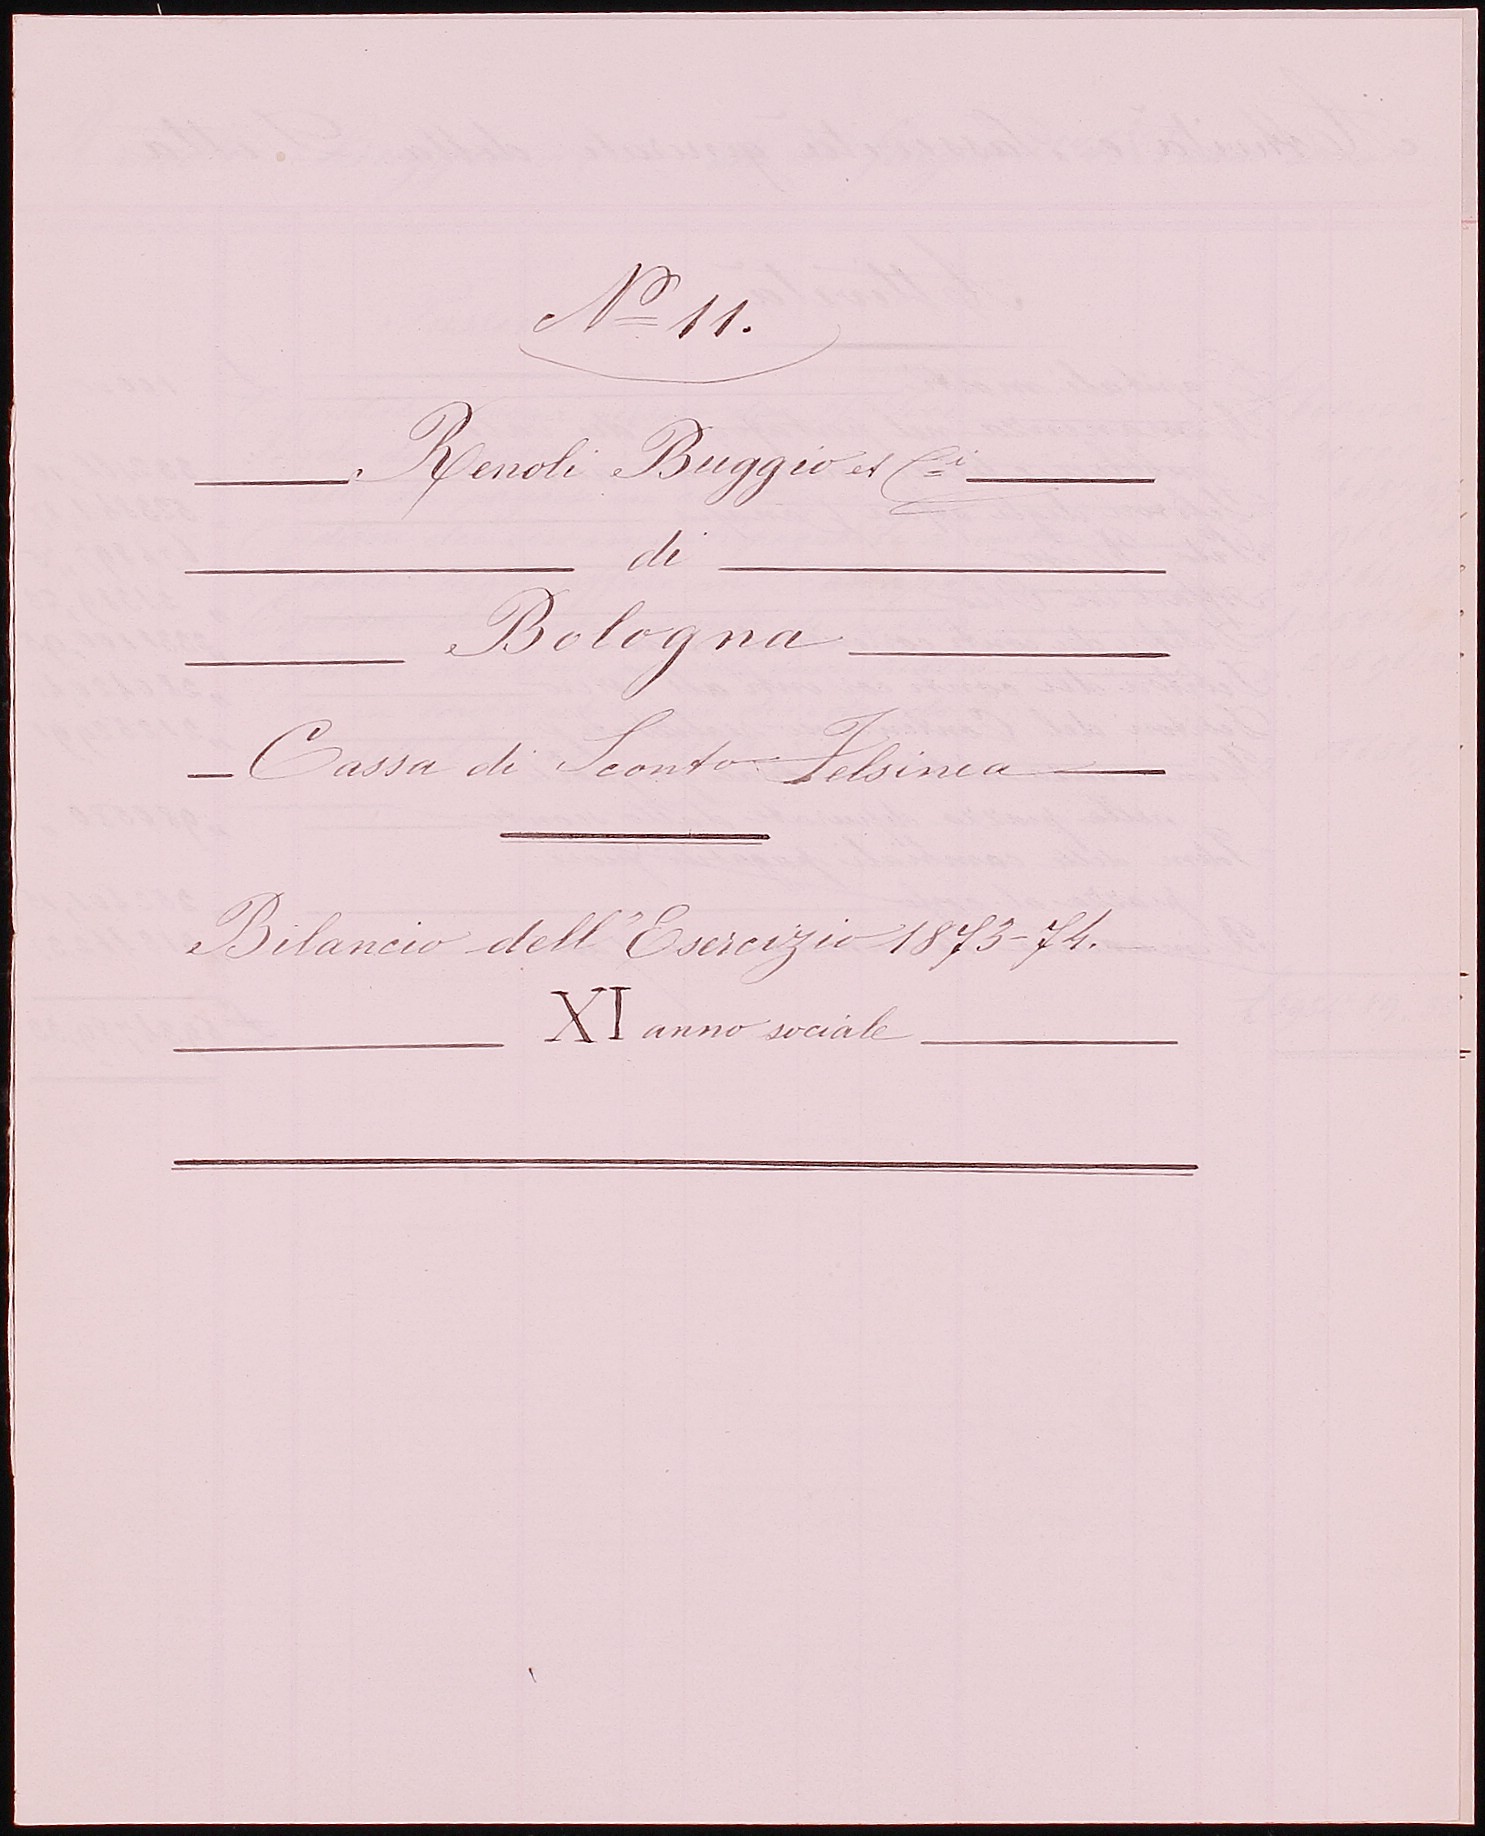 Nº 11.
Renoli Buggio et Ci
di
Bologna
Cassa di Sconto Felsinea
Bilancio dell'Esercizio 1873-74.
XI anno sociale